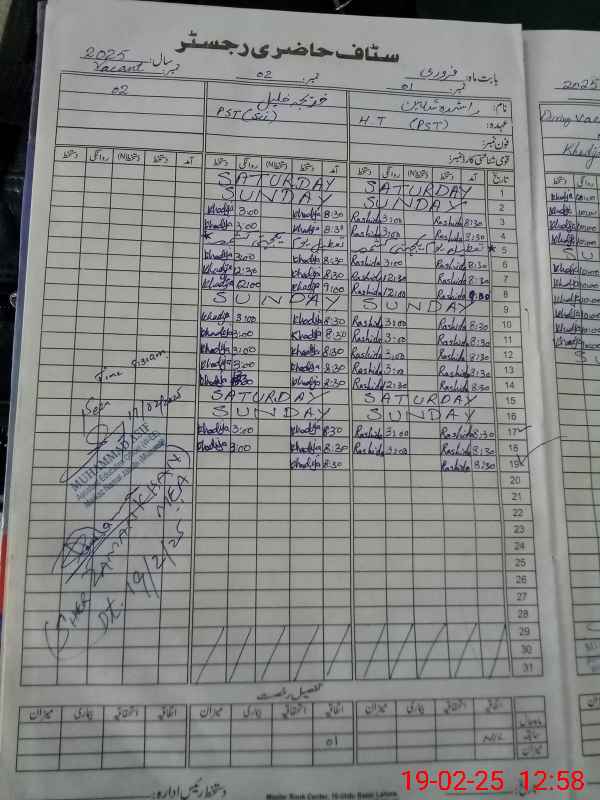 سٹاف حاضری رجسٹر
بابت ماہ: فروری نمبر: 02 سال: 2025
نمبر: 01 نمبر: Vacant
2025
نام: راشدہ
خدیجہ خلیل
02
عہدہ: H.T (PST)
PST
فون نمبر:
قومی شناختی کارڈ نمبر:
تاریخ آمد دستخط (N)دستخط روانگی دستخط آمد دستخط (N)دستخط روانگی دستخط آمد دستخط (N)دستخط روانگی دستخط
SATURDAY SATURDAY 1
SUNDAY SUNDAY 2
Khadija 3:00 Khadija 8:30 Rashida 3:00 Rashida 8:30 3
Khadija 3:00 Khadija 8:30 Rashida 3:00 Rashida 8:30 4
تعطیل یوم یکجہتی کشمیر تعطیل یوم یکجہتی کشمیر 5
Khadija 3:00 Khadija 8:30 Rashida 3:00 Rashida 8:30 6
Khadija 12:30 Khadija 8:30 Rashida 12:30 Rashida 8:30 7
Khadija 12:00 Khadija 9:00 Rashida 12:00 Rashida 8
SUNDAY SUNDAY 9
Khadija 3:00 Khadija 8:30 Rashida 3:00 Rashida 8:30 10
Khadija 3:00 Khadija 8:30 Rashida 3:00 Rashida 8:30 11
Khadija 3:00 Khadija 8:30 Rashida 3:00 Rashida 8:30 12
Khadija 3:00 Khadija 8:30 Rashida 3:00 Rashida 8:30 13
Khadija Khadija 8:30 Rashida 12:30 Rashida 8:30 14
SATURDAY SATURDAY 15
SUNDAY SUNDAY 16
Khadija 3:00 Khadija 8:30 Rashida 3:00 Rashida 8:30 17
Khadija 3:00 Khadija 8:30 Rashida 3:00 Rashida 8:30 18
Khadija 8:30 Rashida 8:30 19
20
21
22
23
24
25
26
27
28
29
30
31
Seen
Time
17/02/2025
MUHAMMAD ASIF
(SHER ZAMAN KHAN)
MEA
Dt. 19/2/25
تفصیل رخصت
اتفاقیہ استحقاقیہ بیماری میزان اتفاقیہ استحقاقیہ بیماری میزان اتفاقیہ استحقاقیہ بیماری میزان
سابقہ
01
میزان
دستخط رئیس ادارہ:
Master Book Center, 16-Urdu Bazar Lahore
During Vac
Khadija
19-02-25 12:58